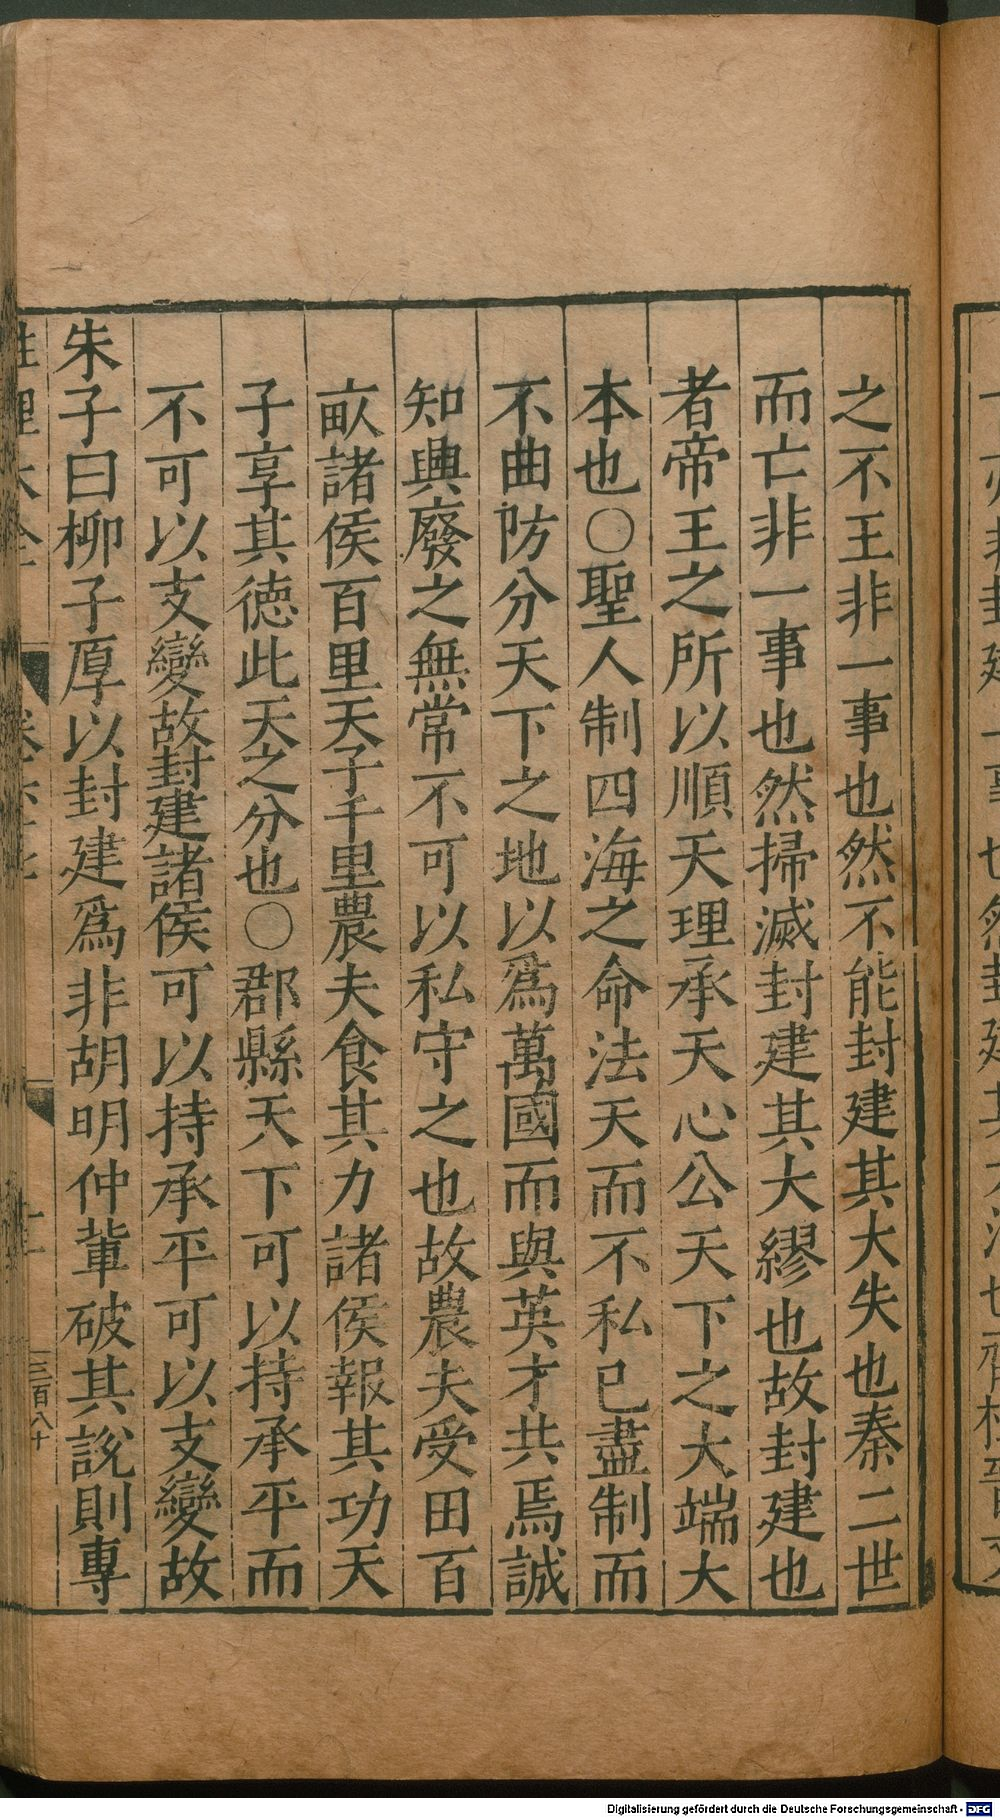 之不王非一事也然不能封建其大失也秦二世
而亡非一事也然掃滅封建其大繆也故封建也
者帝王之所以順天理承天心公天下之大端大
本也○聖人制四海之命法天而不私已盡制而
不曲防分天下之地以爲萬國而與英才共焉誠
知興廢之無常不可以私守之也故農夫受田百
畝諸侯百里天子千里農夫食其力諸侯報其功天
子享其德此天之分也○郡縣天下可以持承平而
不可以支變故封建諸侯可以持承平可以支變故
朱子曰柳子厚以封建爲非胡明仲輩破其說則專
性理大全
三百八十
Digitalisierung gefördert durch die Deutsche Forschungsgemeinschaft - DFG